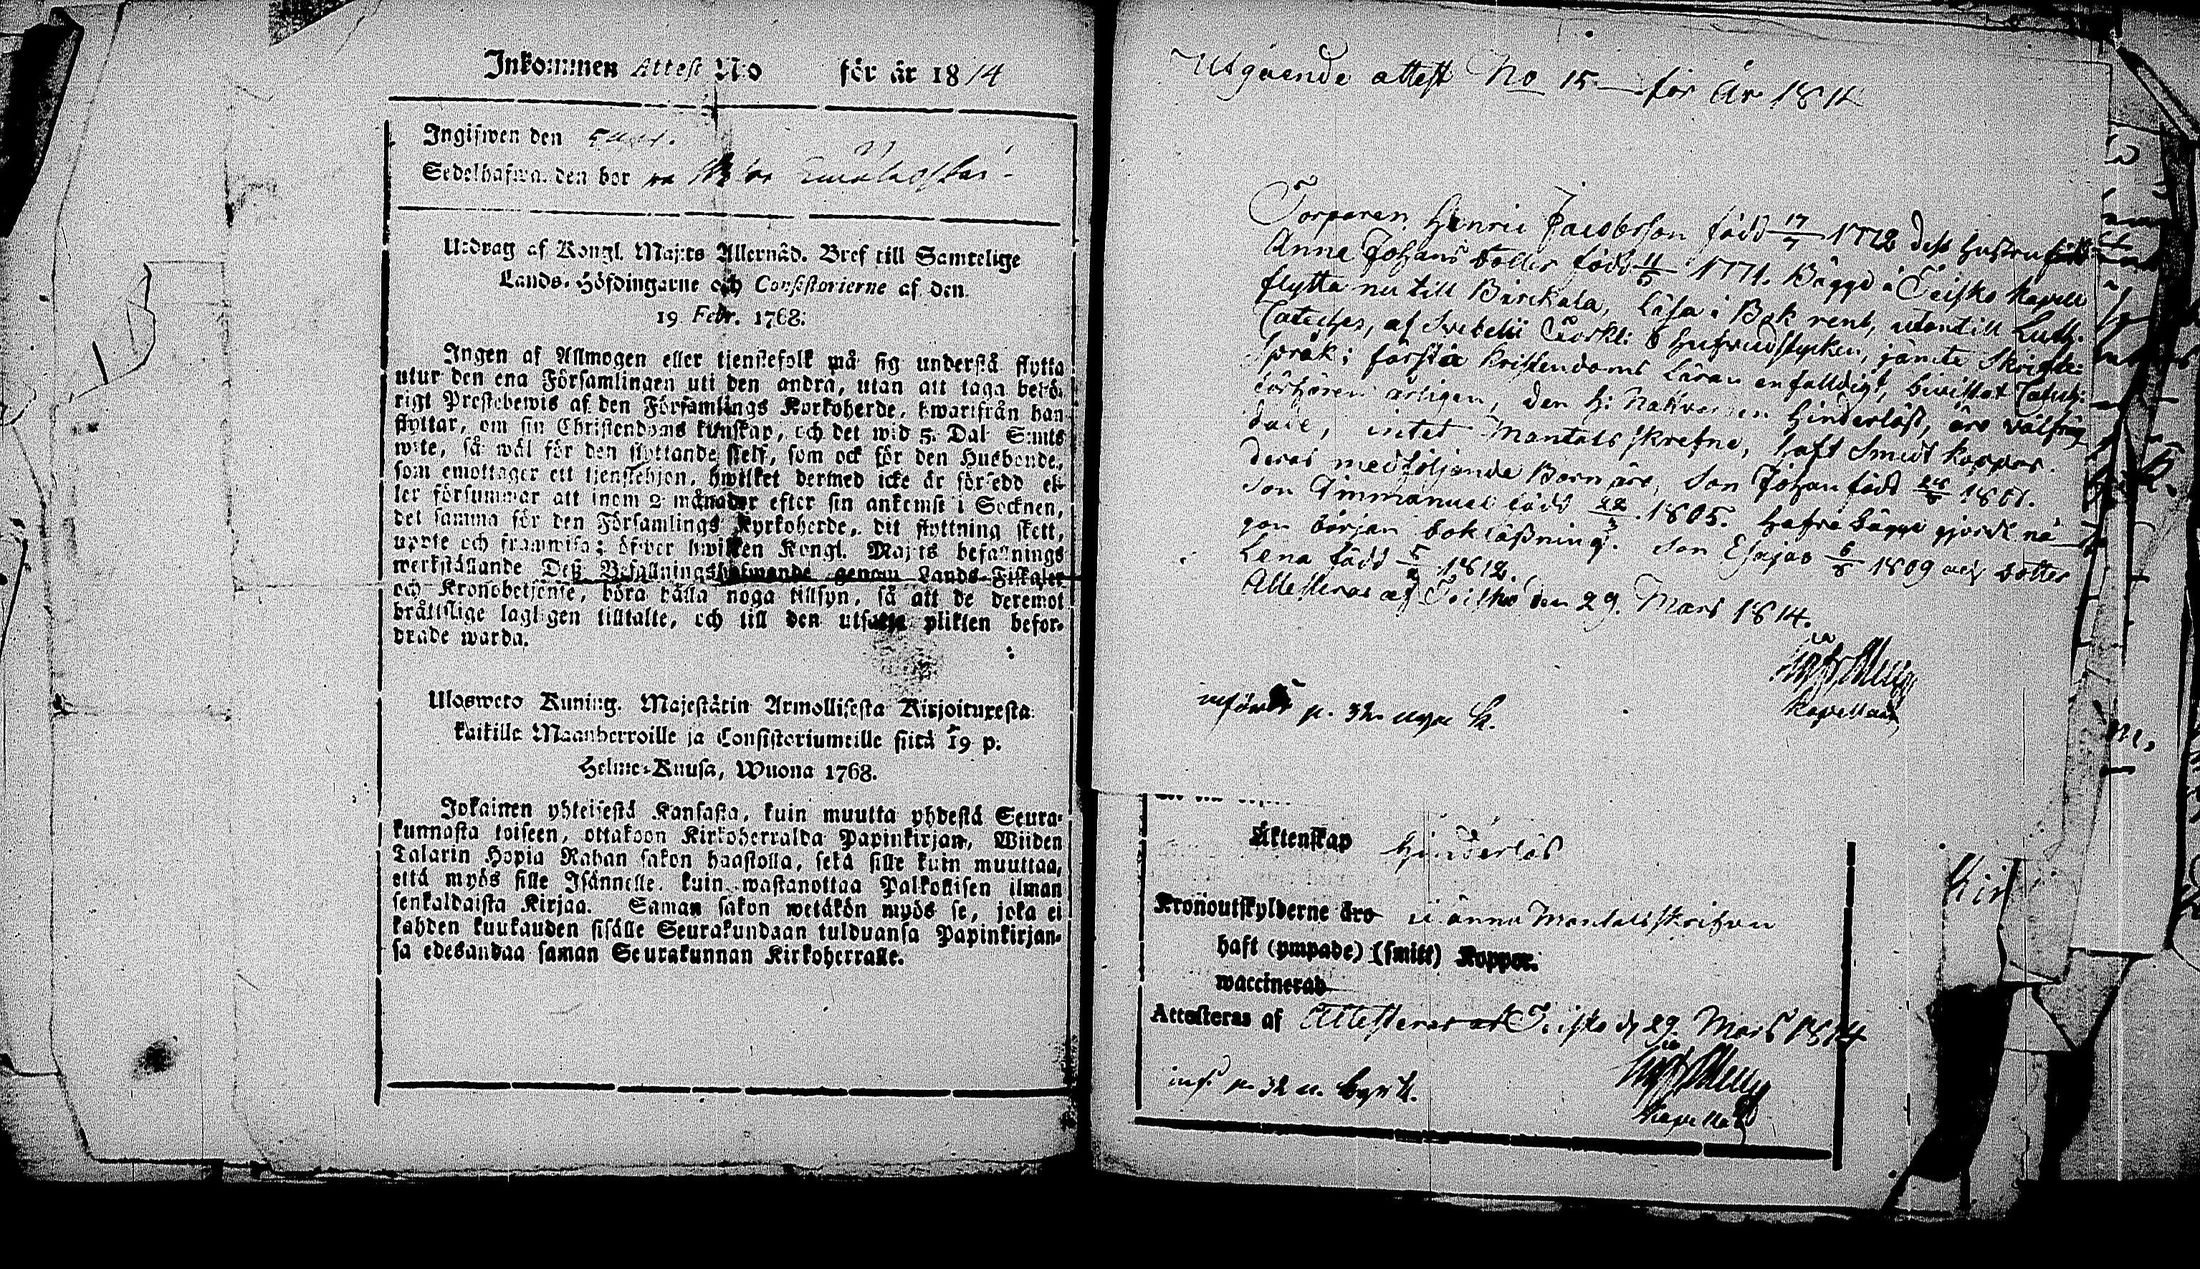 Inkommen Attest No för år 1814
Ingifwen den
Sedelhafwanden bor
Utdrag af Kongl. Maj:ts Allernåd. Bref till Samtelige
Lands-Höfdingarne och Consistorierne af den
19 Febr. 1768:
Ingen af Allmogen eller tjenstefolk må sig understå flytta
utur den ena Församlingen uti den andra, utan att taga behö-
rigt Prestebewis af den Församlings Kyrkoherde, hwarifrån han
flyttar, om sin Christendoms kunskap, och det wid 5. Dal S:mts
wite, så wäl för den flyttande sjelf, som ock för den Husbonde,
som emottager ett tjenstehjon, hwilket dermed icke är försedd el-
ler försummar att inom 2 månader efter sin ankomst i Socknen,
det samma för den Församlings Kyrkoherde, dit flyttning skett,
uppte och framwisa; öfwer hwilken Kongl. Maj:ts befallnings
werkställande Deß Befallningshafwande genom Lands-Fiskaler
och Kronobetjente, böra hålla noga tillsyn, så att de deremot
bråttslige lagligen tilltalte, och till den utsatte plikten befor-
drade warda.
Ulosweto Kuning. Majestätin Armollisesta Kirjoituxesta
kaikille Maanherroille ja Consistoriumeille siitä 19 p.
Helme-Kuusa, Wuona 1768.
Jokainen yhteisestä Kansasta, kuin muutta yhdestä Seura-
kunnasta toiseen, ottakoon Kirkoherralda Papinkirjan, Wiiden
Talarin Hopia Rahan sakon haastolla, sekä sille kuin muuttaa,
että myös sille Isännelle, kuin wastanottaa Palkollisen ilman
senkaldaista Kirjaa. Saman sakon wetäkön myös se, joka ei
kahden kuukauden sisälle Seurakundaan tulduansa Papinkirjan-
sa edesandaa saman Seurakunnan Kirkoherralle.
Utgående attest No 15 för År 1814
Torparen Henric Jacobsson född 17/7 1772 dess hustru
Anna Johans dotter född 11/5 1771. Bägge i Teisko Kapell
flytta nu till Birckala, Läsa i Bok rent, utantill Luth.
Cateches, af Swebelii Förkl: 8 hufvudstycken, jämte Skrifte:
språk; förstå kristendoms Läran enfalldigt, bivistat Catech:
förhören årligen, den H: Nattvarden Hinderlöst, äro välfräg
dade, intet Mantals skrefne, haft Smitt koppor.
Deras medföljande Barn äro, Son Johan född 1801.
Son Immanuel född 22/3 1805. hafva bägge gjordt nå
gon början i bokläsning. Son Esajas 6/8 1809 och dotter
Lena född 5/2 1812.
Attesteras af Teisko den 29. Mars 1814.
Kapellan
infördt p. 32 nya k.
Äktenskap Hinderlös
Kronoutskylderne äro ei ännu Mantalsskrifven
haft (ympade) (smitt) Koppor.
waccinerad
Attesteras af Attesteras af Teisko d 29. Mars 1814
Kapellan
inf. p. 32 n. Kyrk.